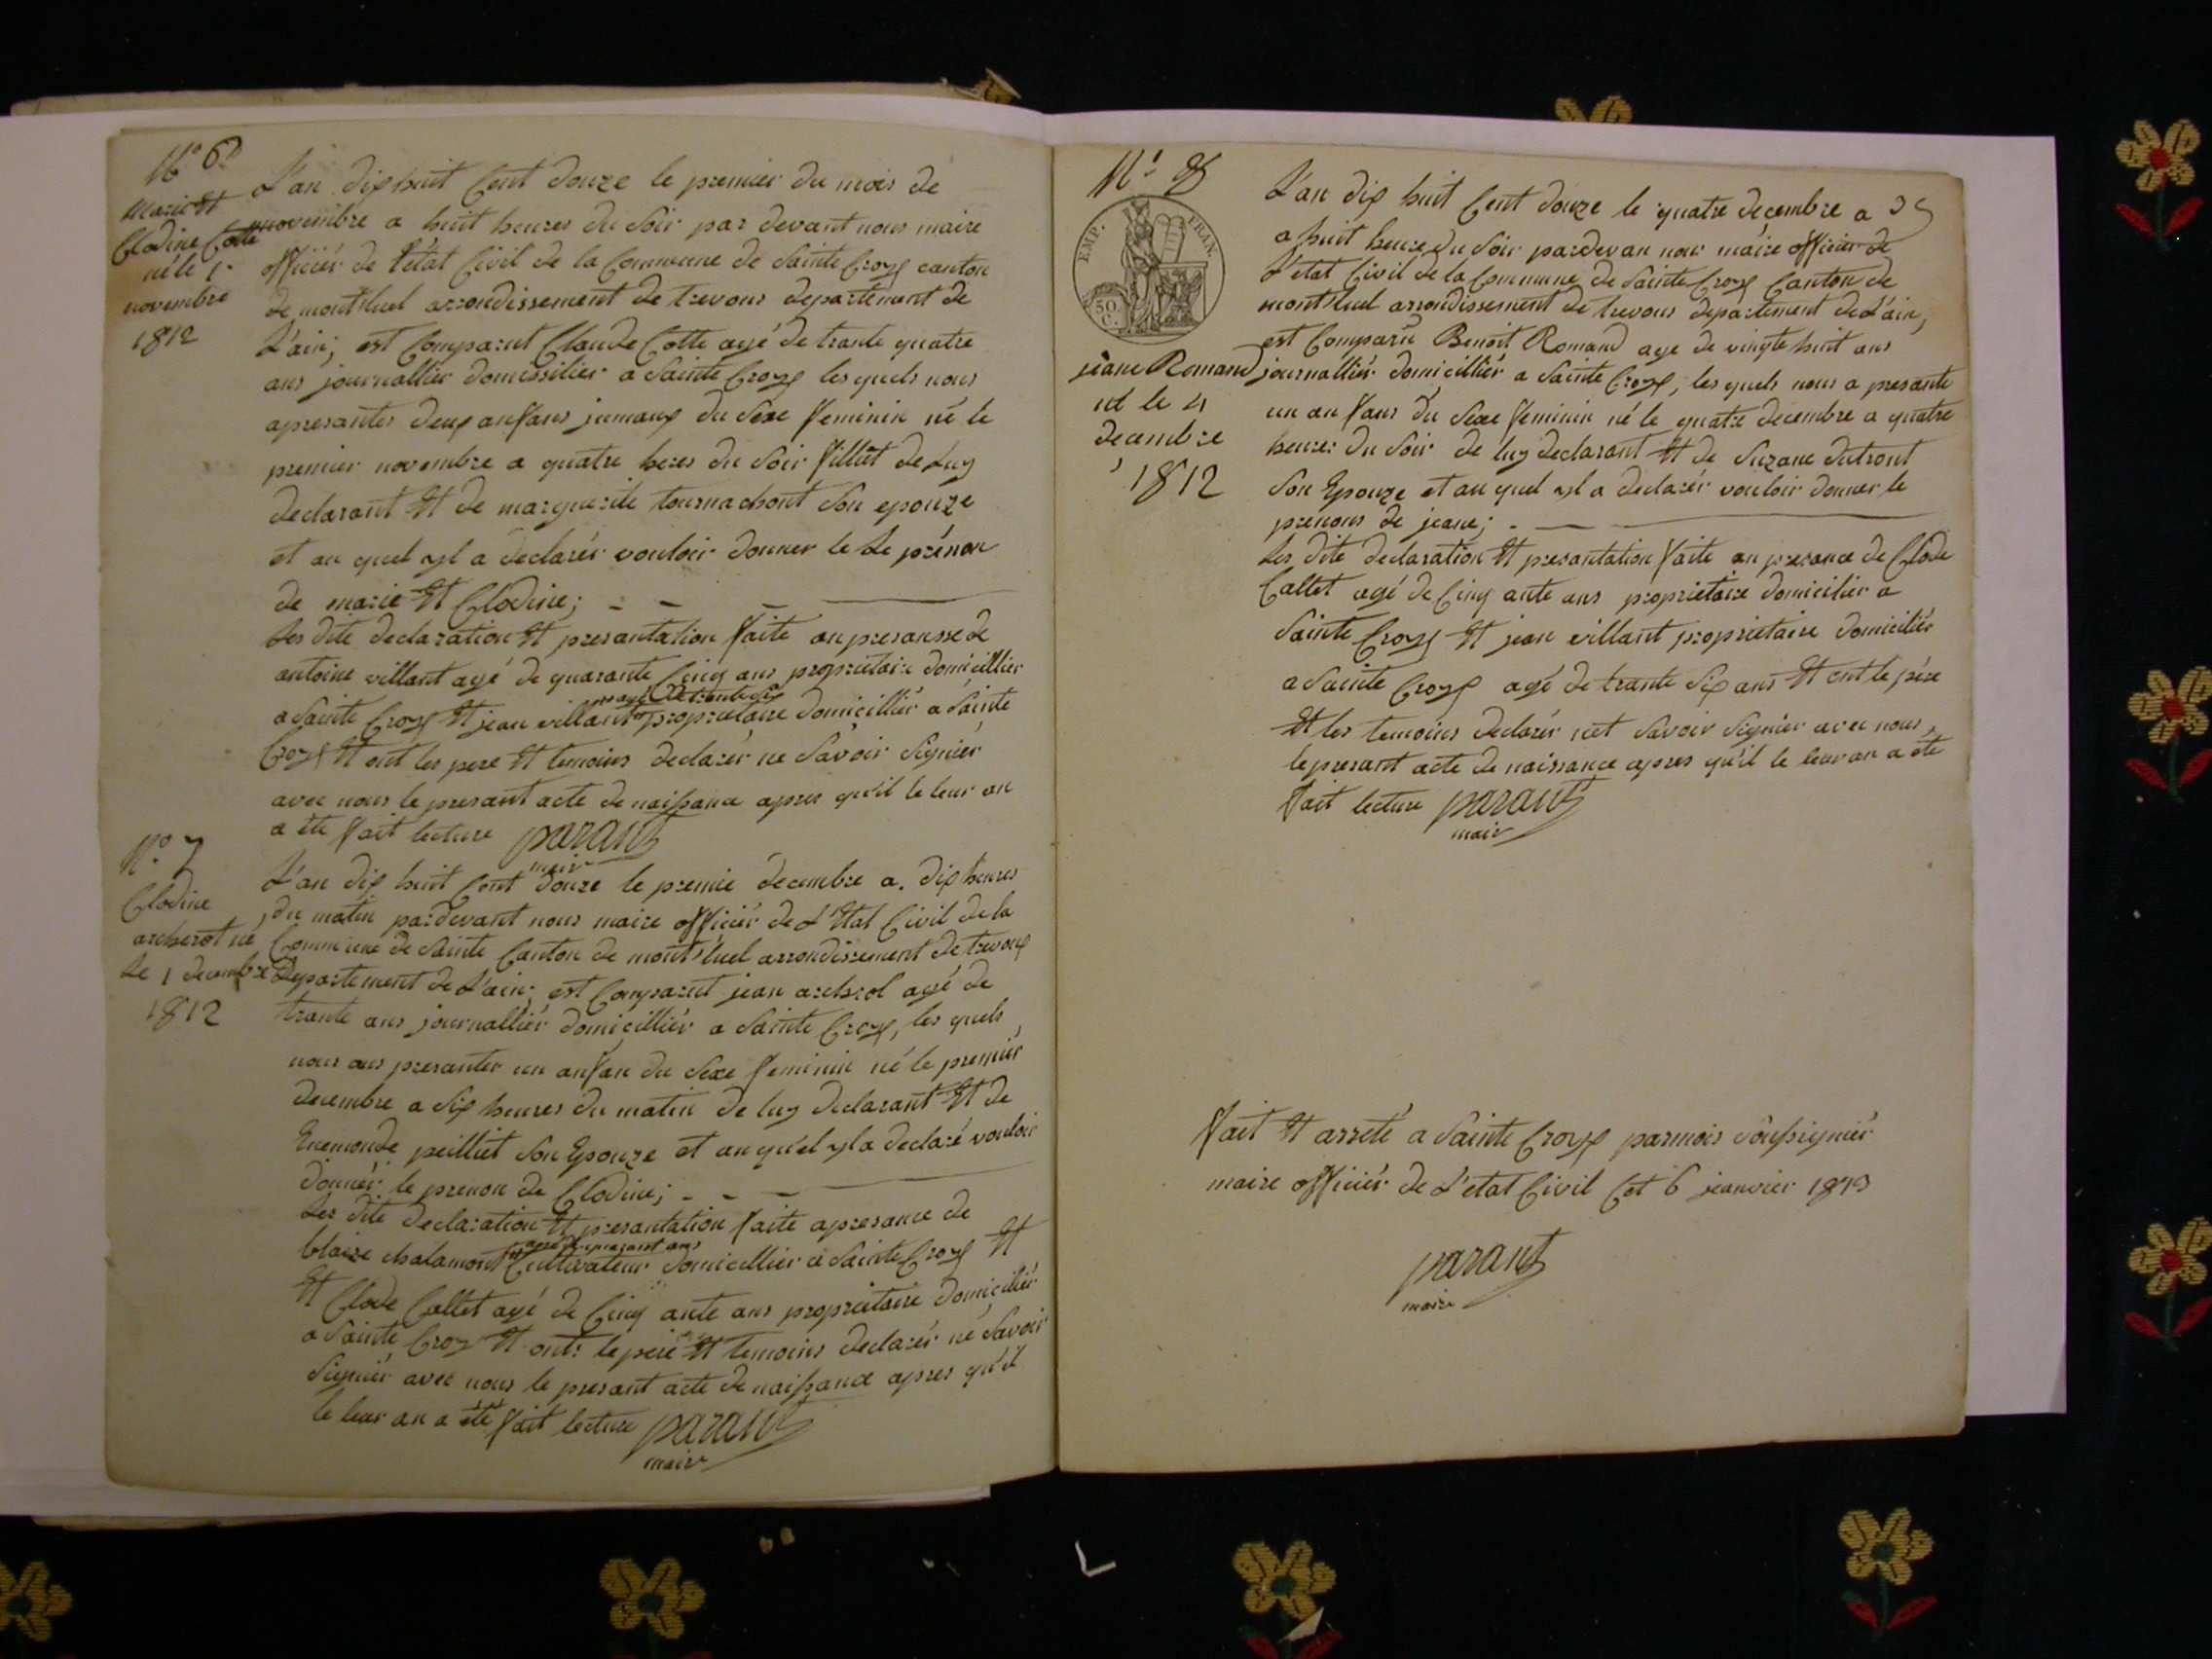 N° 6
marie Et
Clodine Cotte
né le 1r
novembre
1812
L'an dix huit Cent douze le premier du mois de
novembre a huit heures du Soir par devant nous maire
officiér de l'état Civil de la Commune de Sainte Croyx canton
de montluel arrondissement de trevoux departement de
L'ain; est Comparut Claude Cotte agé de trante quatre
ans journallier domissilier a Sainte Croyx les quels nous
apresantés deux anfans jumaux du Sexe feminin né le
premier novembre a quatre heres du Soir filliet de Luy
declarant Et de marguerite tournachont Son epouze
et au quel yl a declarér vouloir donner le Le prénon
de marie Et Clodine;
Les dite declaration Et presantation faite an presansse de
antoine villant agé de quarante Cinq ans proprietaire domicillier
agé de trante six
a Sainte Croyx Et jean villant proprietaire domicillier a Sainte
Croyx Et ont les pere Et temoins declarér ne Savoir Signiér
avec nous le presant acte de naissance apres qu'il le leur an
a été fait lecture parant
mair
N° 7
Clodine
archerot né
Le 1 decembre
1812
L'an dix huit Cent douze le premié decembre a dix heures
du matin pardevant nous maire officiér de L'Etat Civil de la
Commune de Sainte Canton de montluel arrondissement de trevoux
Departement de L'ain; est Comparut jean archrol agé de
trante ans journalliér domicilliér a Sainte Croyx, les quels
nous ans presanter un anfan du Sexe feminin né le premiér
decembre a six heures du matin de luy declarant Et de
Enemonde peilliet Son Epouze et au quel yl a declaré vouloir
donnér le prenon de Clodine;
Les dite declaration Et presantation faite apresance de
agé de quarant ans
blaize chalamont Cultivateur domicillier a Sainte Croyx Et
Et Clode Callet agé de Cinq ante ans proprietaire domiciliér
a Sainte Croy Et ont le pere Et temoins declarér né Savoir
Signiér avec nous le presant acte de naissance apres qu'il
le leur an a été fait lecture parant
mair
N° 8
EMP. FRAN.
50 C.
jeane Romand
né le 4
decembre
1812
L'an dix huit Cent douze le quatre decembre a
a huit heure du Soir pardevan nous maire officier de
L'etat Civil de la Commune de Sainte Croyx Canton de
montluel arrondissement de trevoux departement de L'ain,
est Comparu Benoit Romand age de vingte huit ans
journalliér domicilliér a Sainte Croyx, les quels nous a presante
un anfans du Sexe feminin né le quatre decembre a quatre
heures du Soir de luy declarant Et de Suzane dutront
Son Epouze et au quel yl a declarér vouloir donner le
prenons de jeane;
Les dite declaration Et presantation faite an presance de Clode
Callet agé de Cinq ante ans proprietaire domicilier a
Sainte Croyx Et jean villant proprietaire domiciliér
a Sainte Croyx agé de trante Six ans Et ont le pére
Et les temoins declarér net Savoir Signier avec nous,
le presant acte de naissance apres qu'il le leur an a été
fait lecture parant
mair
fait Et arreté a Sainte Croyx par mois Soussigniér
maire officiér de L'etat Civil Cet 6 jeanvier 1813
parant
maire